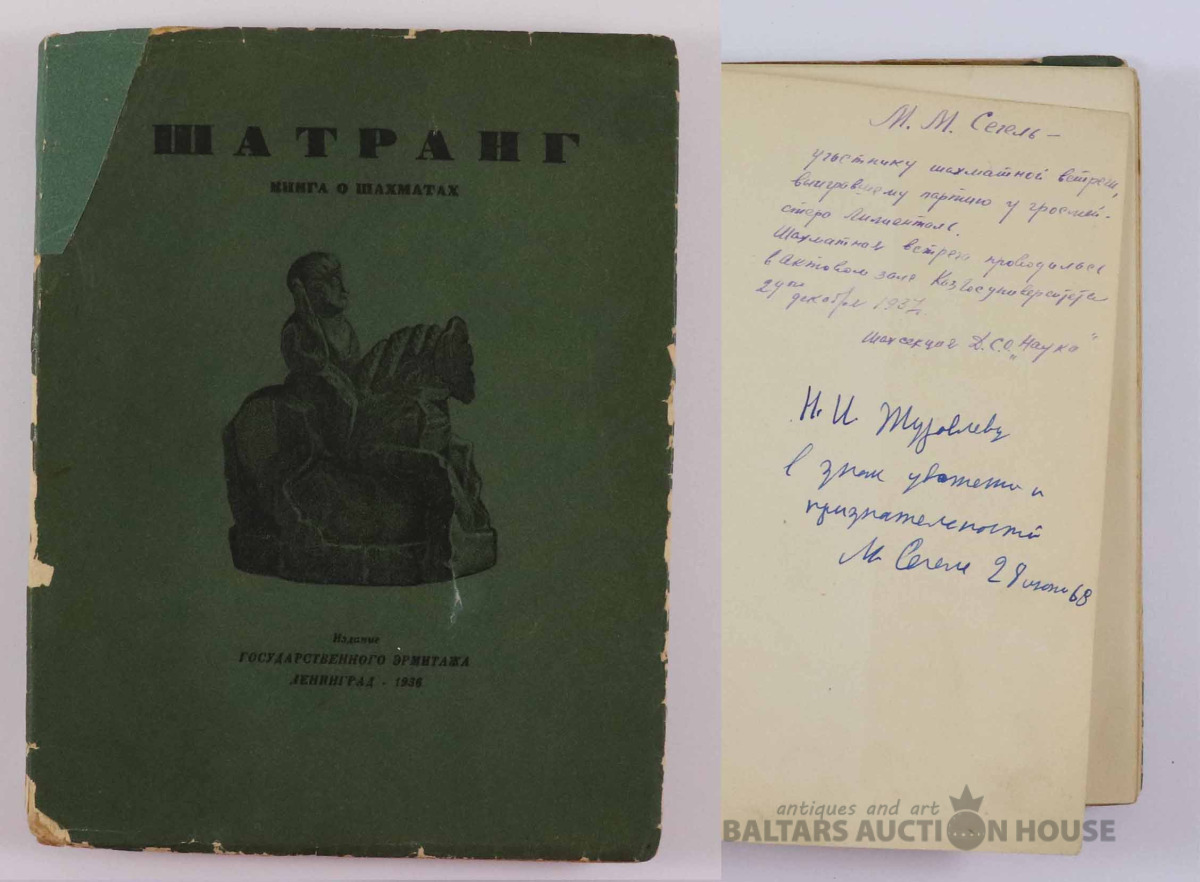 ШАТРАНГ
КНИГА О ШАХМАТАХ
Издание
ГОСУДАРСТВЕННОГО ЭРМИТАЖА
ЛЕНИНГРАД - 1936
М. М. Сегель –
участнику шахматной встречи,
выигравшему партию у гроссмей-
стера Лилиенталь.
Шахматная встреча проводилась
в Актовом зале Казгосуниверситета
декабря 1937г.
Шахсекция Д.С.О. „Наука"
Н. И. Журавлеву
в знак уважения и
признательности
М. Сегель 28 68
antiques and art
BALTARS AUCTION HOUSE